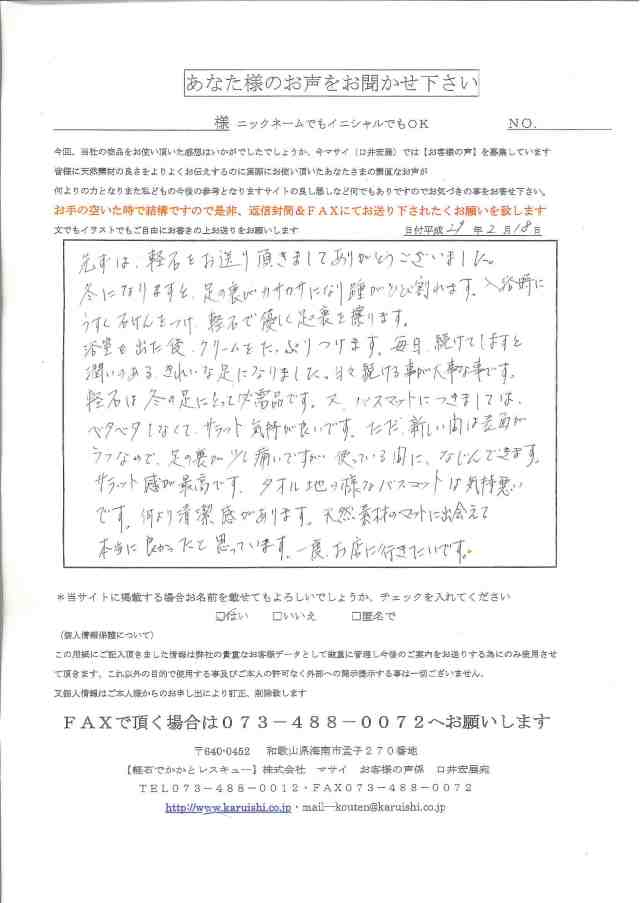 あなた様のお声をお聞かせ下さい
様 ニックネームでもイニシャルでもOK NO.
今回、当社の商品をお使い頂いた感想はいかがでしたでしょうか、今マサイ(口井宏展)では【お客様の声】を募集しています
皆様に天然素材の良さをよりよくお伝えするのに実際にお使い頂いたあなたさまの素直なお声が
何よりの力となりまた私どもの今後の参考となりますサイトの良し悪しなど何でもありですのでお気づきの事をお寄せ下さい。
お手の空いた時で結構ですので是非、返信封筒&FAXにてお送り下されたくお願いを致します
文でもイラストでもご自由にお書きの上お送りをお願いします 日付平成 29 年 2 月 18 日
先ずは、軽石をお送り頂きましてありがとうございました。
冬になりますと、足の裏がカサカサになり踵がひび割れます。入浴時に
うすく石けんをつけ、軽石で優しく足裏を擦ります。
浴室を出た後、クリームをたっぷりつけます。毎日、続けてしますと
潤いのある、きれいな足になりました。日々続ける事が大事な事です。
軽石は冬の足にとって必需品です。又、バスマットにつきましては、
ベタベタしなくて、サラット気持が良いです。ただ、新しい内は表面が
なので、足の裏が少し痛いですが、使っている間に、なじんできます。
サラット感が最高です。タオル地の様なバスマットは気持悪い
です。何より清潔感があります。天然素材のマットに出会えて
本当に良かったと思っています。一度、お店に行きたいです。
*当サイトに掲載する場合お名前を載せてもよろしいでしょうか、チェックを入れてください
□はい □いいえ □匿名で
(個人情報保護について)
この用紙にご記入頂きました情報は弊社の貴重なお客様データとして厳重に管理し今後のご案内をお送りする為にのみ使用させ
て頂きます、これ以外の目的で使用する事及びご本人の許可なく外部への開示提示する事は一切ございません。
又個人情報はご本人様からのお申し出により訂正、削除致します
FAXで頂く場合は073-488-0072へお願いします
〒640-0452 和歌山県海南市孟子270番地
【軽石でかかとレスキュー】株式会社 マサイ お客様の声係 口井宏展宛
TEL073-488-0012・FAX073-488-0072
http://www.karuishi.co.jp・mail—kouten@karuishi.co.jp